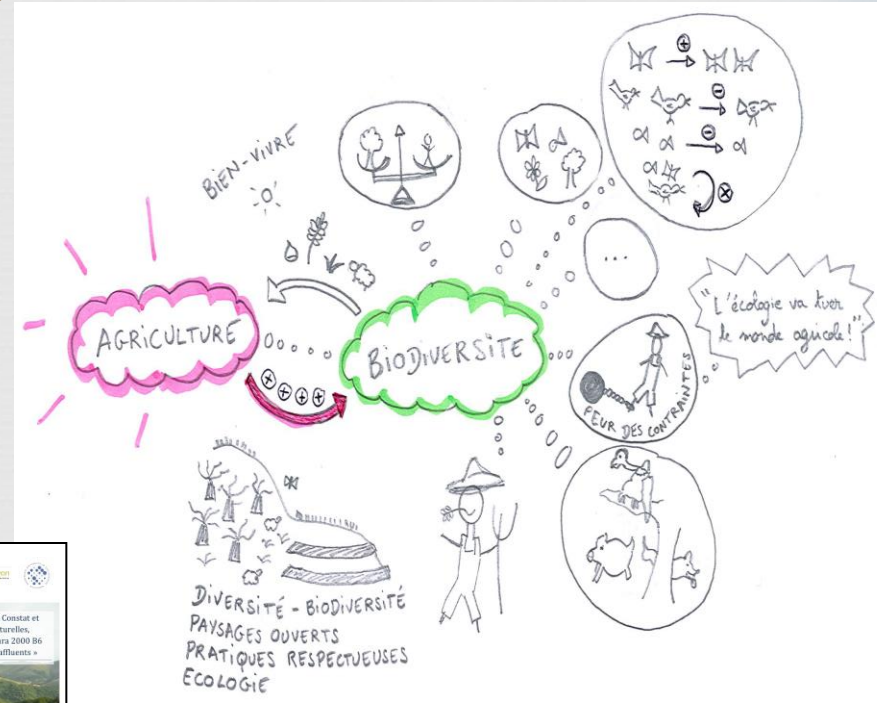 BIEN-VIVRE
AGRICULTURE
BIODIVERSITE
...
"L'écologie va tuer
le monde agricole!"
PEUR DES CONTRAINTES
DIVERSITÉ - BIODIVERSITÉ
PAYSAGES OUVERTS
PRATIQUES RESPECTUEUSES
ECOLOGIE
Constat et
turelles,
ura 2000 B6
affluents »